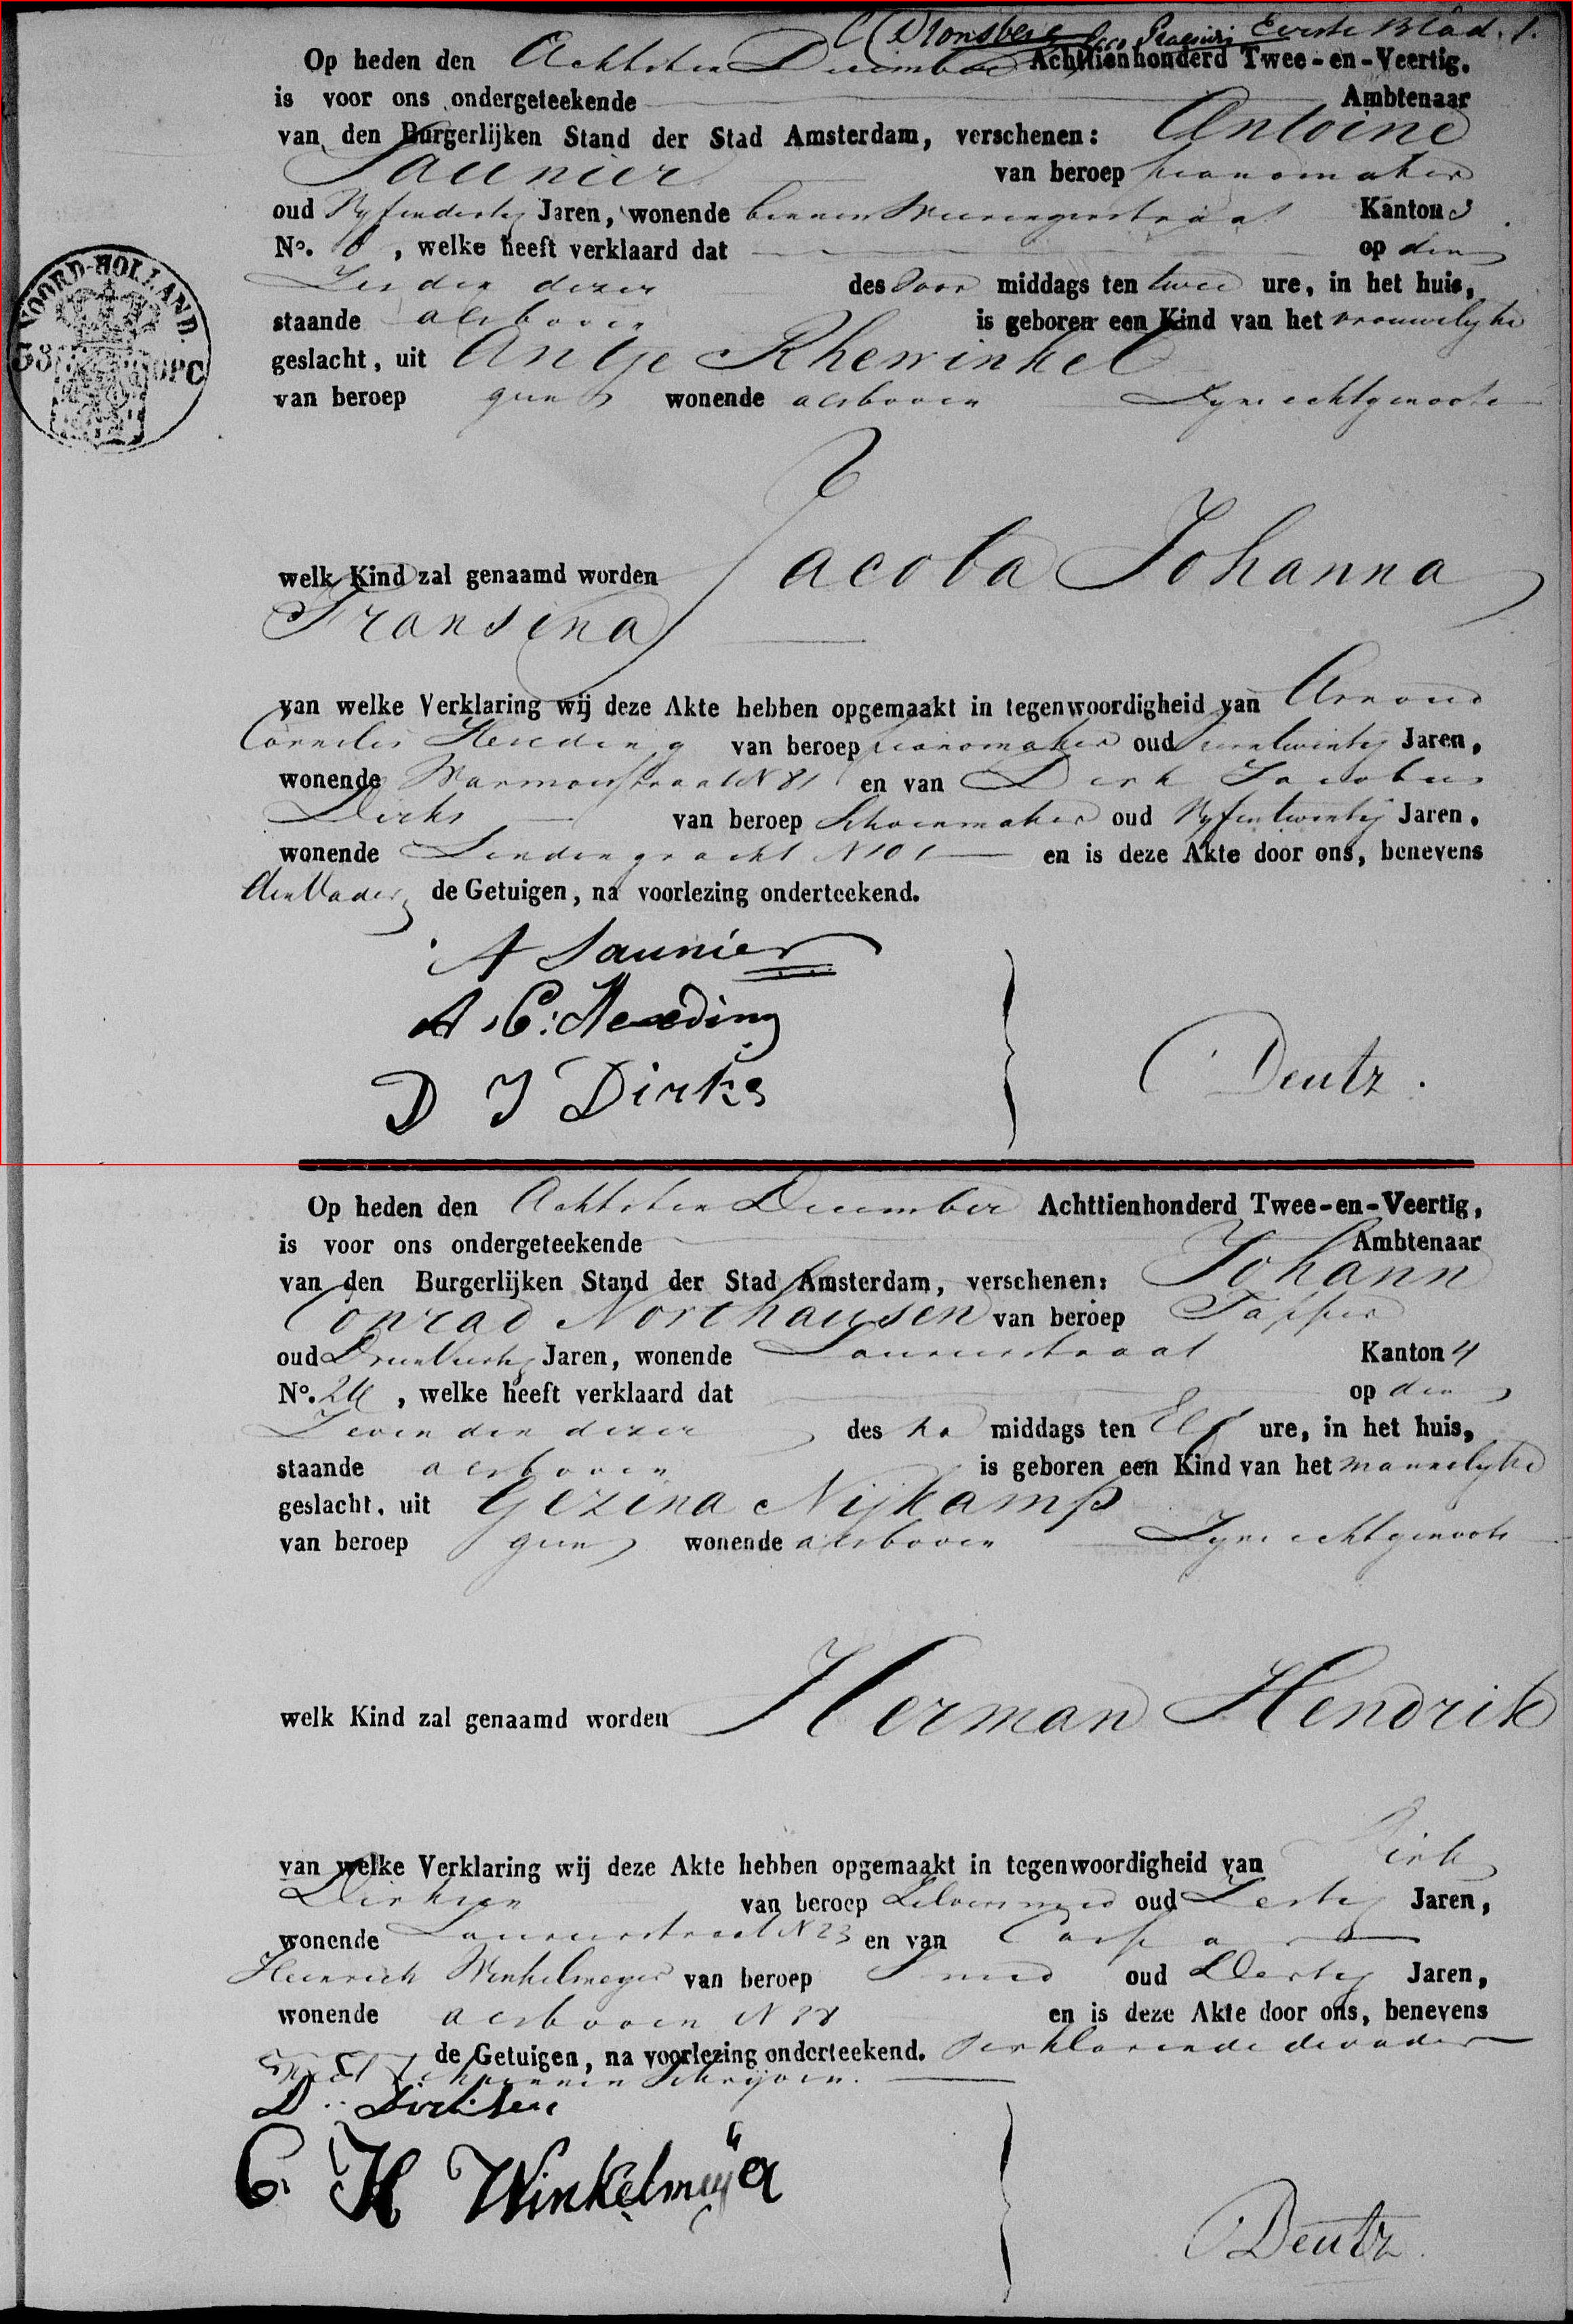 Eerste Blad. 1.
Op heden den Achtsten December Achttienhonderd Twee-en-Veertig,
is voor ons ondergeteekende Ambtenaar
van den Burgerlijken Stand der Stad Amsterdam, verschenen: Antoine
Saunier van beroep pianomaker
oud Vyfendertig Jaren, wonende binnen Wieringerstraat Kanton 3
No. 8, welke heeft verklaard dat op den
Zesden dezer des Voor middags ten twee ure, in het huis,
staande alsboven is geboren een Kind van het vrouwelyke
geslacht, uit Antje Rhewinkel
van beroep geen wonende alsboven Zyne echtgenoote
NOORD-HOLLAND.
38 OPC
welk Kind zal genaamd worden Jacoba Johanna
Fransina
van welke Verklaring wij deze Akte hebben opgemaakt in tegenwoordigheid van Arnoud
Cornelis van beroep pianomaker oud Jaren,
wonende Warmoesstraat N 81 en van Dirk Jacobus
Dirks van beroep Schoenmaker oud Vyfentwintig Jaren,
wonende Lindengracht N 101 en is deze Akte door ons, benevens
den Vader de Getuigen, na voorlezing onderteekend.
A Saunier
A. C.
D J Dirks
Deutz.
Op heden den Achtsten December Achttienhonderd Twee-en-Veertig,
is voor ons ondergeteekende Ambtenaar
van den Burgerlijken Stand der Stad Amsterdam, verschenen: Johann
Conrad Northausen van beroep Tapper
oud Drieenveertig Jaren, wonende Laurierstraat Kanton 4
No. , welke heeft verklaard dat op den
Zevenden dezer des na middags ten Elf ure, in het huis,
staande alsboven is geboren een Kind van het mannelyke
geslacht, uit Gezina Nijkamp
van beroep geen wonende alsboven Zyne echtgenoote
welk Kind zal genaamd worden Herman Hendrik
van welke Verklaring wij deze Akte hebben opgemaakt in tegenwoordigheid van Dirk
Dirksen van beroep Zilversmid oud Zestig Jaren,
wonende Laurierstraat N 23 en van Caspar
Heinrich Winkelmeyer van beroep Smid oud Dertig Jaren,
wonende alsboven N 38 en is deze Akte door ons, benevens
de Getuigen, na voorlezing onderteekend. Verklarende de vader
niet te kunnen Schryven.
D. Dirksen
C. H Winkelmeyer
Deutz.